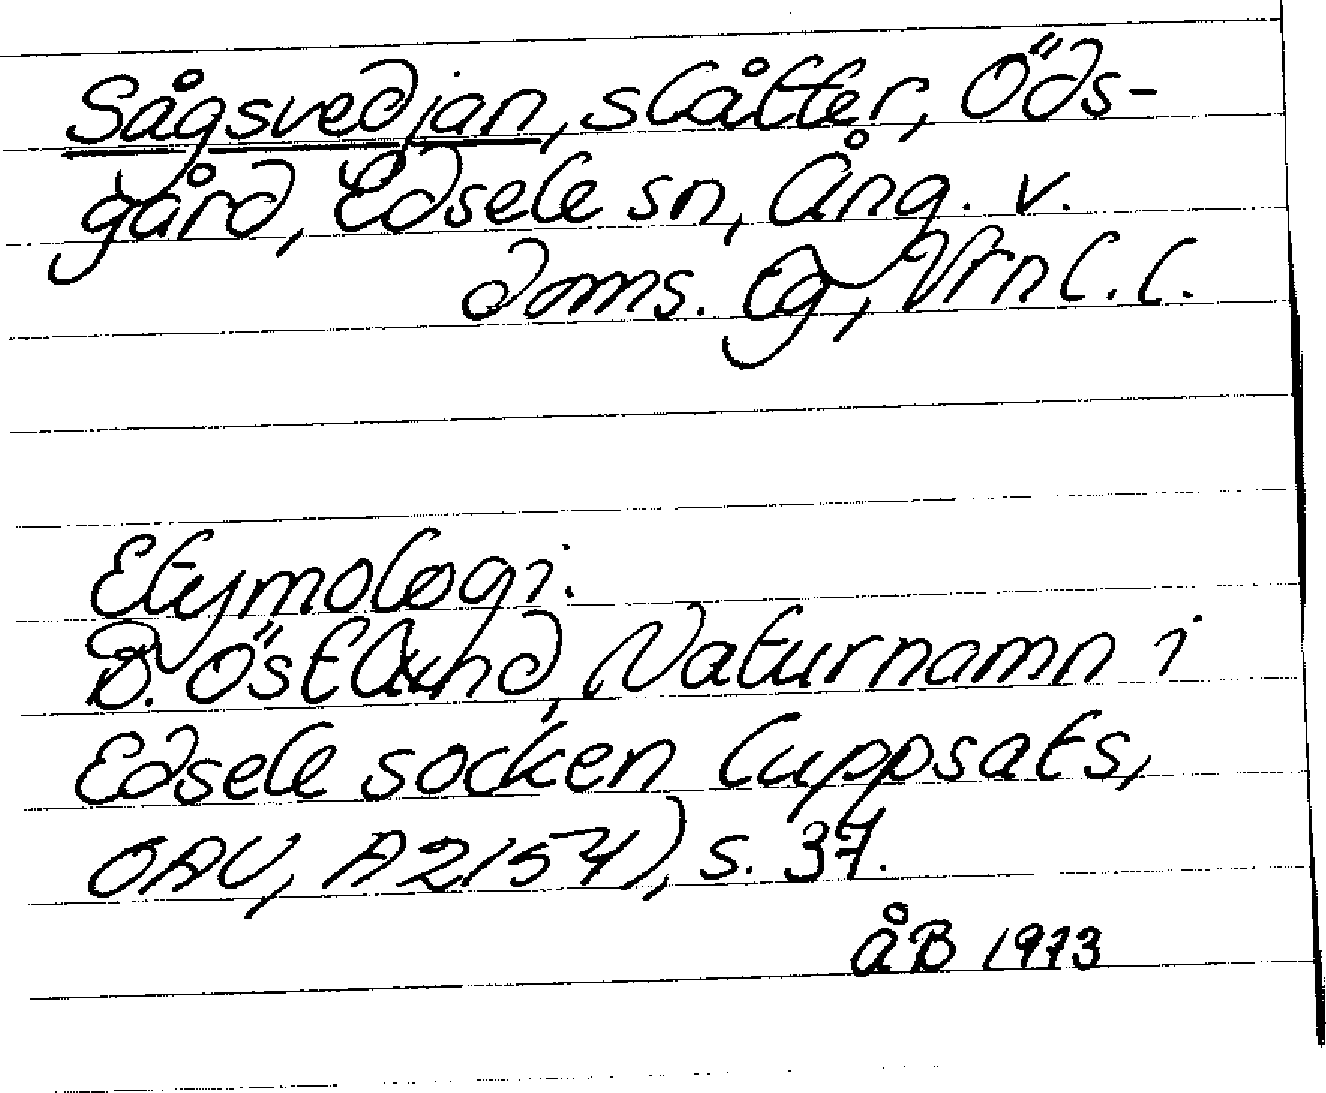 Sågsvedjan, slåtter, Öds-
gård, Edsele sn, Ång. v.
doms. Eg, Vrnl.l.
Etymologi.
B. Östlund, Naturnamn i
Edsele socken (uppsats,
OAU, A2154), s. 37.
åB 1973